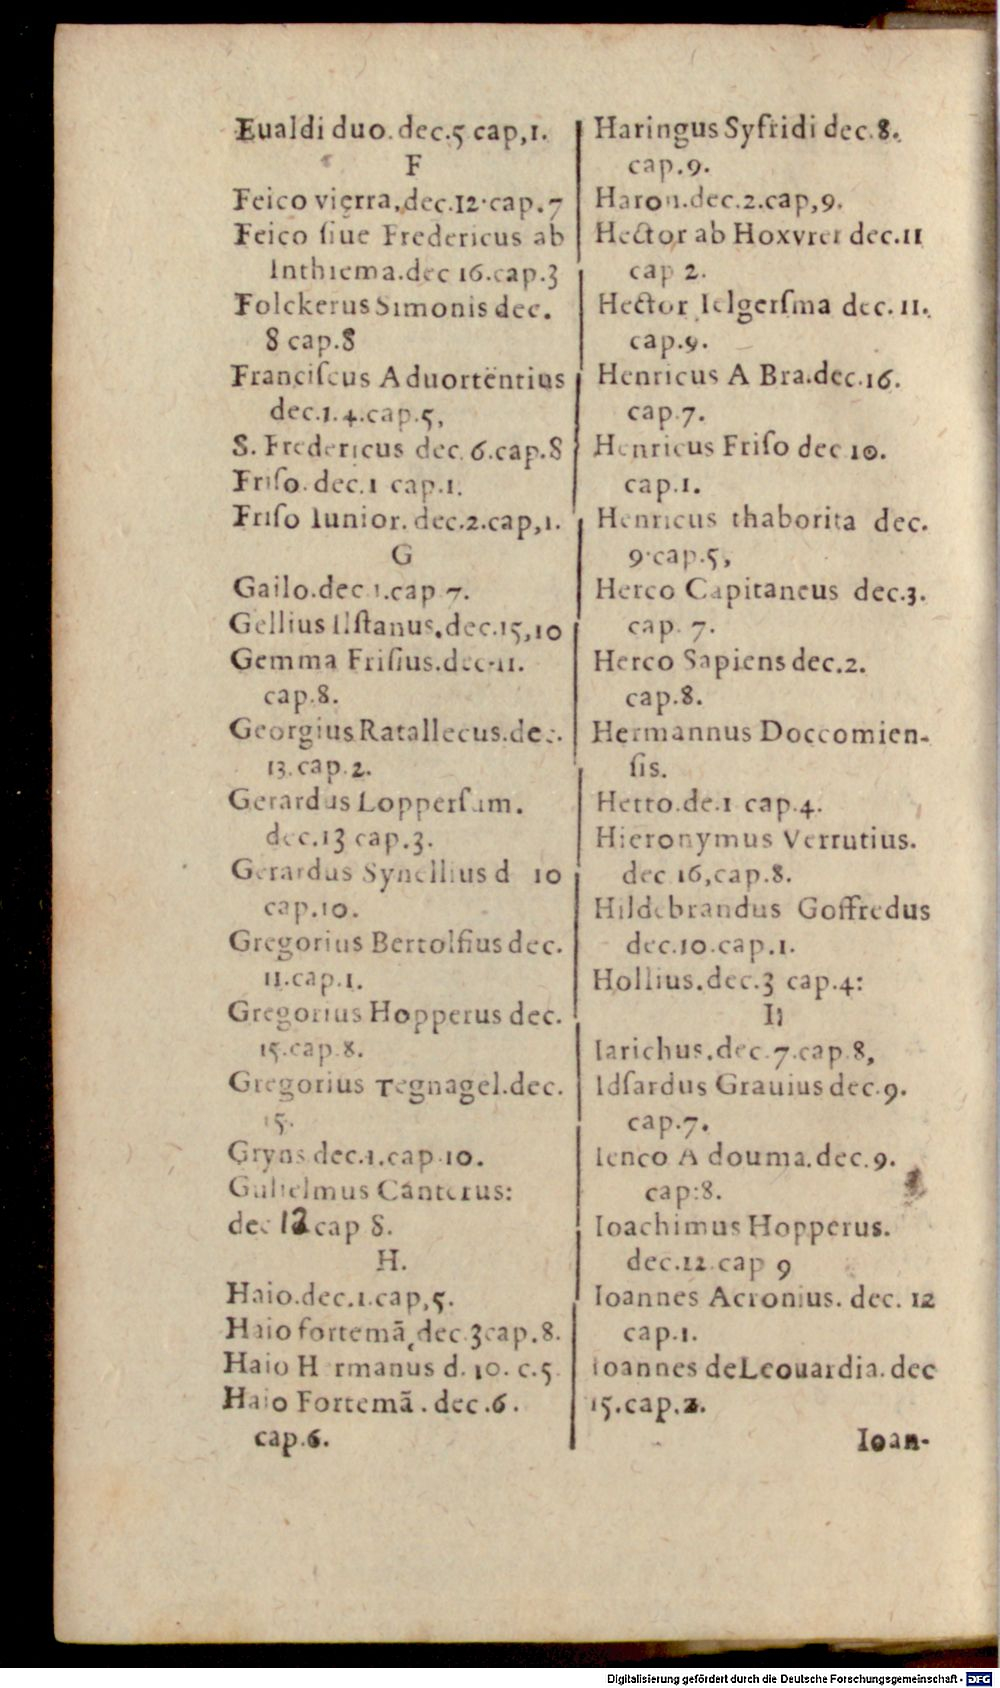 Eualdi duo. dec.5 cap,1.
F
Feico vierra,dec.12·cap.7
Feico ſiue Fredericus ab
Inthiema.dec 16.cap.3
Folckerus Simonis dec.
8 cap.8
Franciſcus Aduortentius
dec.1.4.cap.5,
S. Fredericus dec. 6.cap.8
Friſo. dec.1 cap.1.
Friſo Iunior. dec.2.cap,1.
G
Gailo.dec 1.cap 7.
Gellius Ilſtanus.dec.15,10
Gemma Friſius.dec·11.
cap.8.
Georgius Ratallecus.dec.
13.cap.2.
GerardusOpperſum.
dec.13 cap.3.
Gerardus Synellius d 10
cap.10.
Gregorius Bertolfius dec.
11.cap.1.
Gregorius Hopperus dec.
15.cap.8.
Gregorius Tegnagel.dec.
15.
Gryns dec.1.cap.10.
Gulielmus Canterus:
dec 12 cap 8.
H.
Haio.dec.1.cap,5.
Haio fortemã dec.3cap.8.
Haio H rmanus d. 10. c.5.
Haio Fortemã. dec.6.
cap.6.
Haringus Syfridi dec.8.
cap.9.
Haron.dec.2.cap,9.
Hector ab Hoxvrei dec.11
cap 2.
Hector Ielgerſma dec.11.
cap.9.
Henricus A Bra.dec.16.
cap.7.
Henricus Friſo dec 10.
cap.1.
Henricus thaborita dec.
9·cap.5,
Herco Capitaneus dec.3.
cap. 7.
Herco Sapiens dec.2.
cap.8.
Hermannus Doccomien-
ſis.
Hetto.de.1 cap.4.
Hieronymus Verrutius.
dec 16,cap.8.
Hildebrandus Goffredus
dec.10.cap.1.
Hollius.dec.3 cap.4:
I
Iarichus.dec.7.cap 8,
Idſardus Grauius dec.9.
cap.7.
Ienco A douma.dec.9.
cap:8.
Ioachimus Hopperus.
dec.12.cap 9
Ioannes Acronius. dec. 12
cap.1.
Ioannes deLeouardia. dec
15.cap.2.
Ioan-
Digitalisierung gefördert durch die Deutsche Forschungsgemeinschaft - DFG